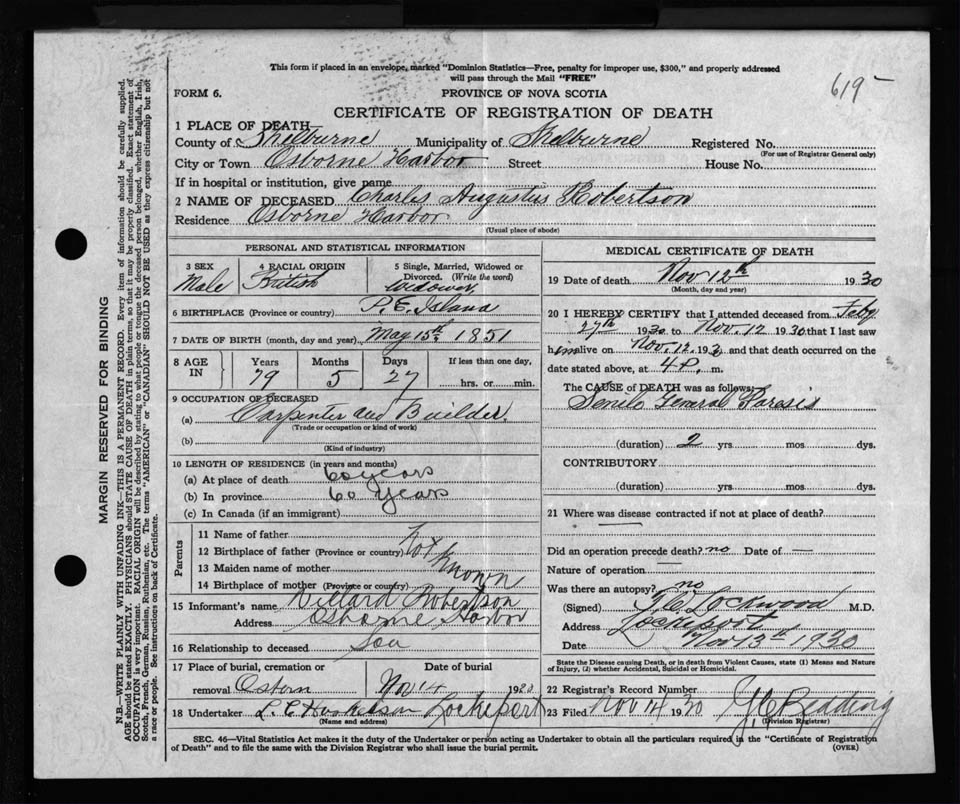 This form if placed in an envelope, marked "Dominion Statistics—Free, penalty for improper use, $300," and properly addressed
will pass through the Mail "FREE"
619
FORM 6.
PROVINCE OF NOVA SCOTIA
CERTIFICATE OF REGISTRATION OF DEATH
1 PLACE OF DEATH—
County of Shelburne Municipality of Shelburne Registered No.
(For use of Registrar General only)
City or Town Osborne Harbor Street House No.
If in hospital or institution, give name
2 NAME OF DECEASED Charles Augustus Robertson
Residence Osborne Harbor
(Usual place of abode)
PERSONAL AND STATISTICAL INFORMATION
3 SEX 4 RACIAL ORIGIN 5 Single, Married, Widowed or
Divorced. (Write the word)
Male British Widower
6 BIRTHPLACE (Province or country) P.E. Island
7 DATE OF BIRTH (month, day and year) May 15th 1851
8 AGE IN Years Months Days If less than one day,
79 5 27 hrs. or min.
9 OCCUPATION OF DECEASED
(a) Carpenter and Builder
(Trade or occupation or kind of work)
(b)
(Kind of industry)
10 LENGTH OF RESIDENCE (in years and months)
(a) At place of death 60 years
(b) In province 60 years
(c) In Canada (if an immigrant)
Parents
11 Name of father Not
12 Birthplace of father (Province or country)
13 Maiden name of mother Known
14 Birthplace of mother (Province or country)
15 Informant's name Willard Robertson
Address Osborne Harbor
16 Relationship to deceased Son
17 Place of burial, cremation or Date of burial
removal Nov 14 1930
18 Undertaker L. C. Lockeport
(Name and address)
MEDICAL CERTIFICATE OF DEATH
19 Date of death Nov 12th 1930
(Month, day and year)
20 I HEREBY CERTIFY that I attended deceased from Feby
27th 1930 to Nov. 12 1930 that I last saw
him alive on Nov. 12 193 and that death occurred on the
date stated above, at 4 P. m.
The CAUSE of DEATH was as follows:
Senile General Paresis
(duration) 2 yrs. mos. dys.
CONTRIBUTORY
(duration) yrs. mos. dys.
21 Where was disease contracted if not at place of death?
Did an operation precede death? no Date of —
Nature of operation
Was there an autopsy? no
(Signed) Lockwood M.D.
Address Lockeport
Date Nov 13th 1930
State the Disease causing Death, or in death from Violent Causes, state (1) Means and Nature
of Injury, (2) whether Accidental, Suicidal or Homicidal.
22 Registrar's Record Number
23 Filed Nov 14 1930
(Division Registrar)
SEC. 46—Vital Statistics Act makes it the duty of the Undertaker or person acting as Undertaker to obtain all the particulars required in the "Certificate of Registration
of Death" and to file the same with the Division Registrar who shall issue the burial permit. (OVER)
MARGIN RESERVED FOR BINDING
N.B.—WRITE PLAINLY WITH UNFADING INK—THIS IS A PERMANENT RECORD. Every item of information should be carefully supplied.
AGE should be stated EXACTLY. PHYSICIANS should STATE CAUSE OF DEATH in plain terms, so that it may be properly classified. Exact statement of
OCCUPATION is very important. RACIAL ORIGIN will be described by stating to what people or tongue the deceased person belonged, whether English, Irish,
Scotch, French, German, Russian, Ruthenian, etc. The terms "AMERICAN" or "CANADIAN" SHOULD NOT BE USED as they express citizenship but not
a race or people. See instructions on back of Certificate.